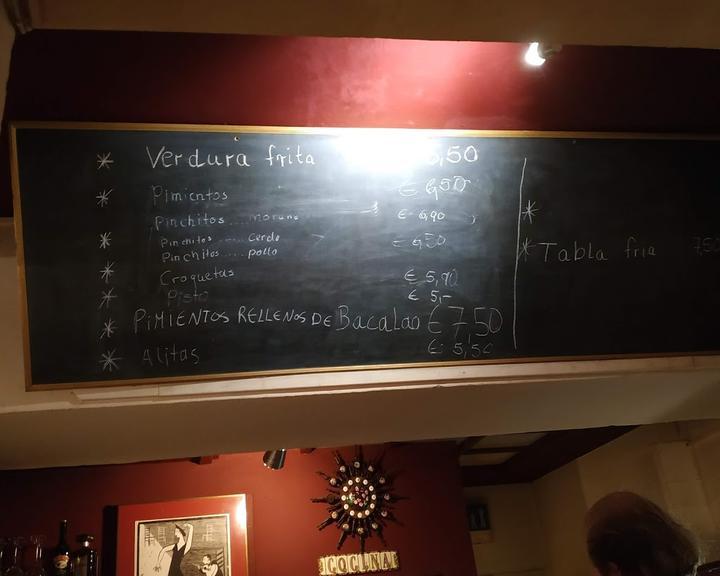 * Verdura frita 6,50
* Pimientos € 6,50
Pinchitos .... moruno € 6,90
* Pinchitos ...... Cerdo
Pinchitos ..... pollo
* Croquetas € 5,90
* Pisto € 5,-
* PIMIENTOS RELLENOS DE Bacalao € 7,50
* Alitas € 5,50
*
* Tabla fria 7,5
COCINA